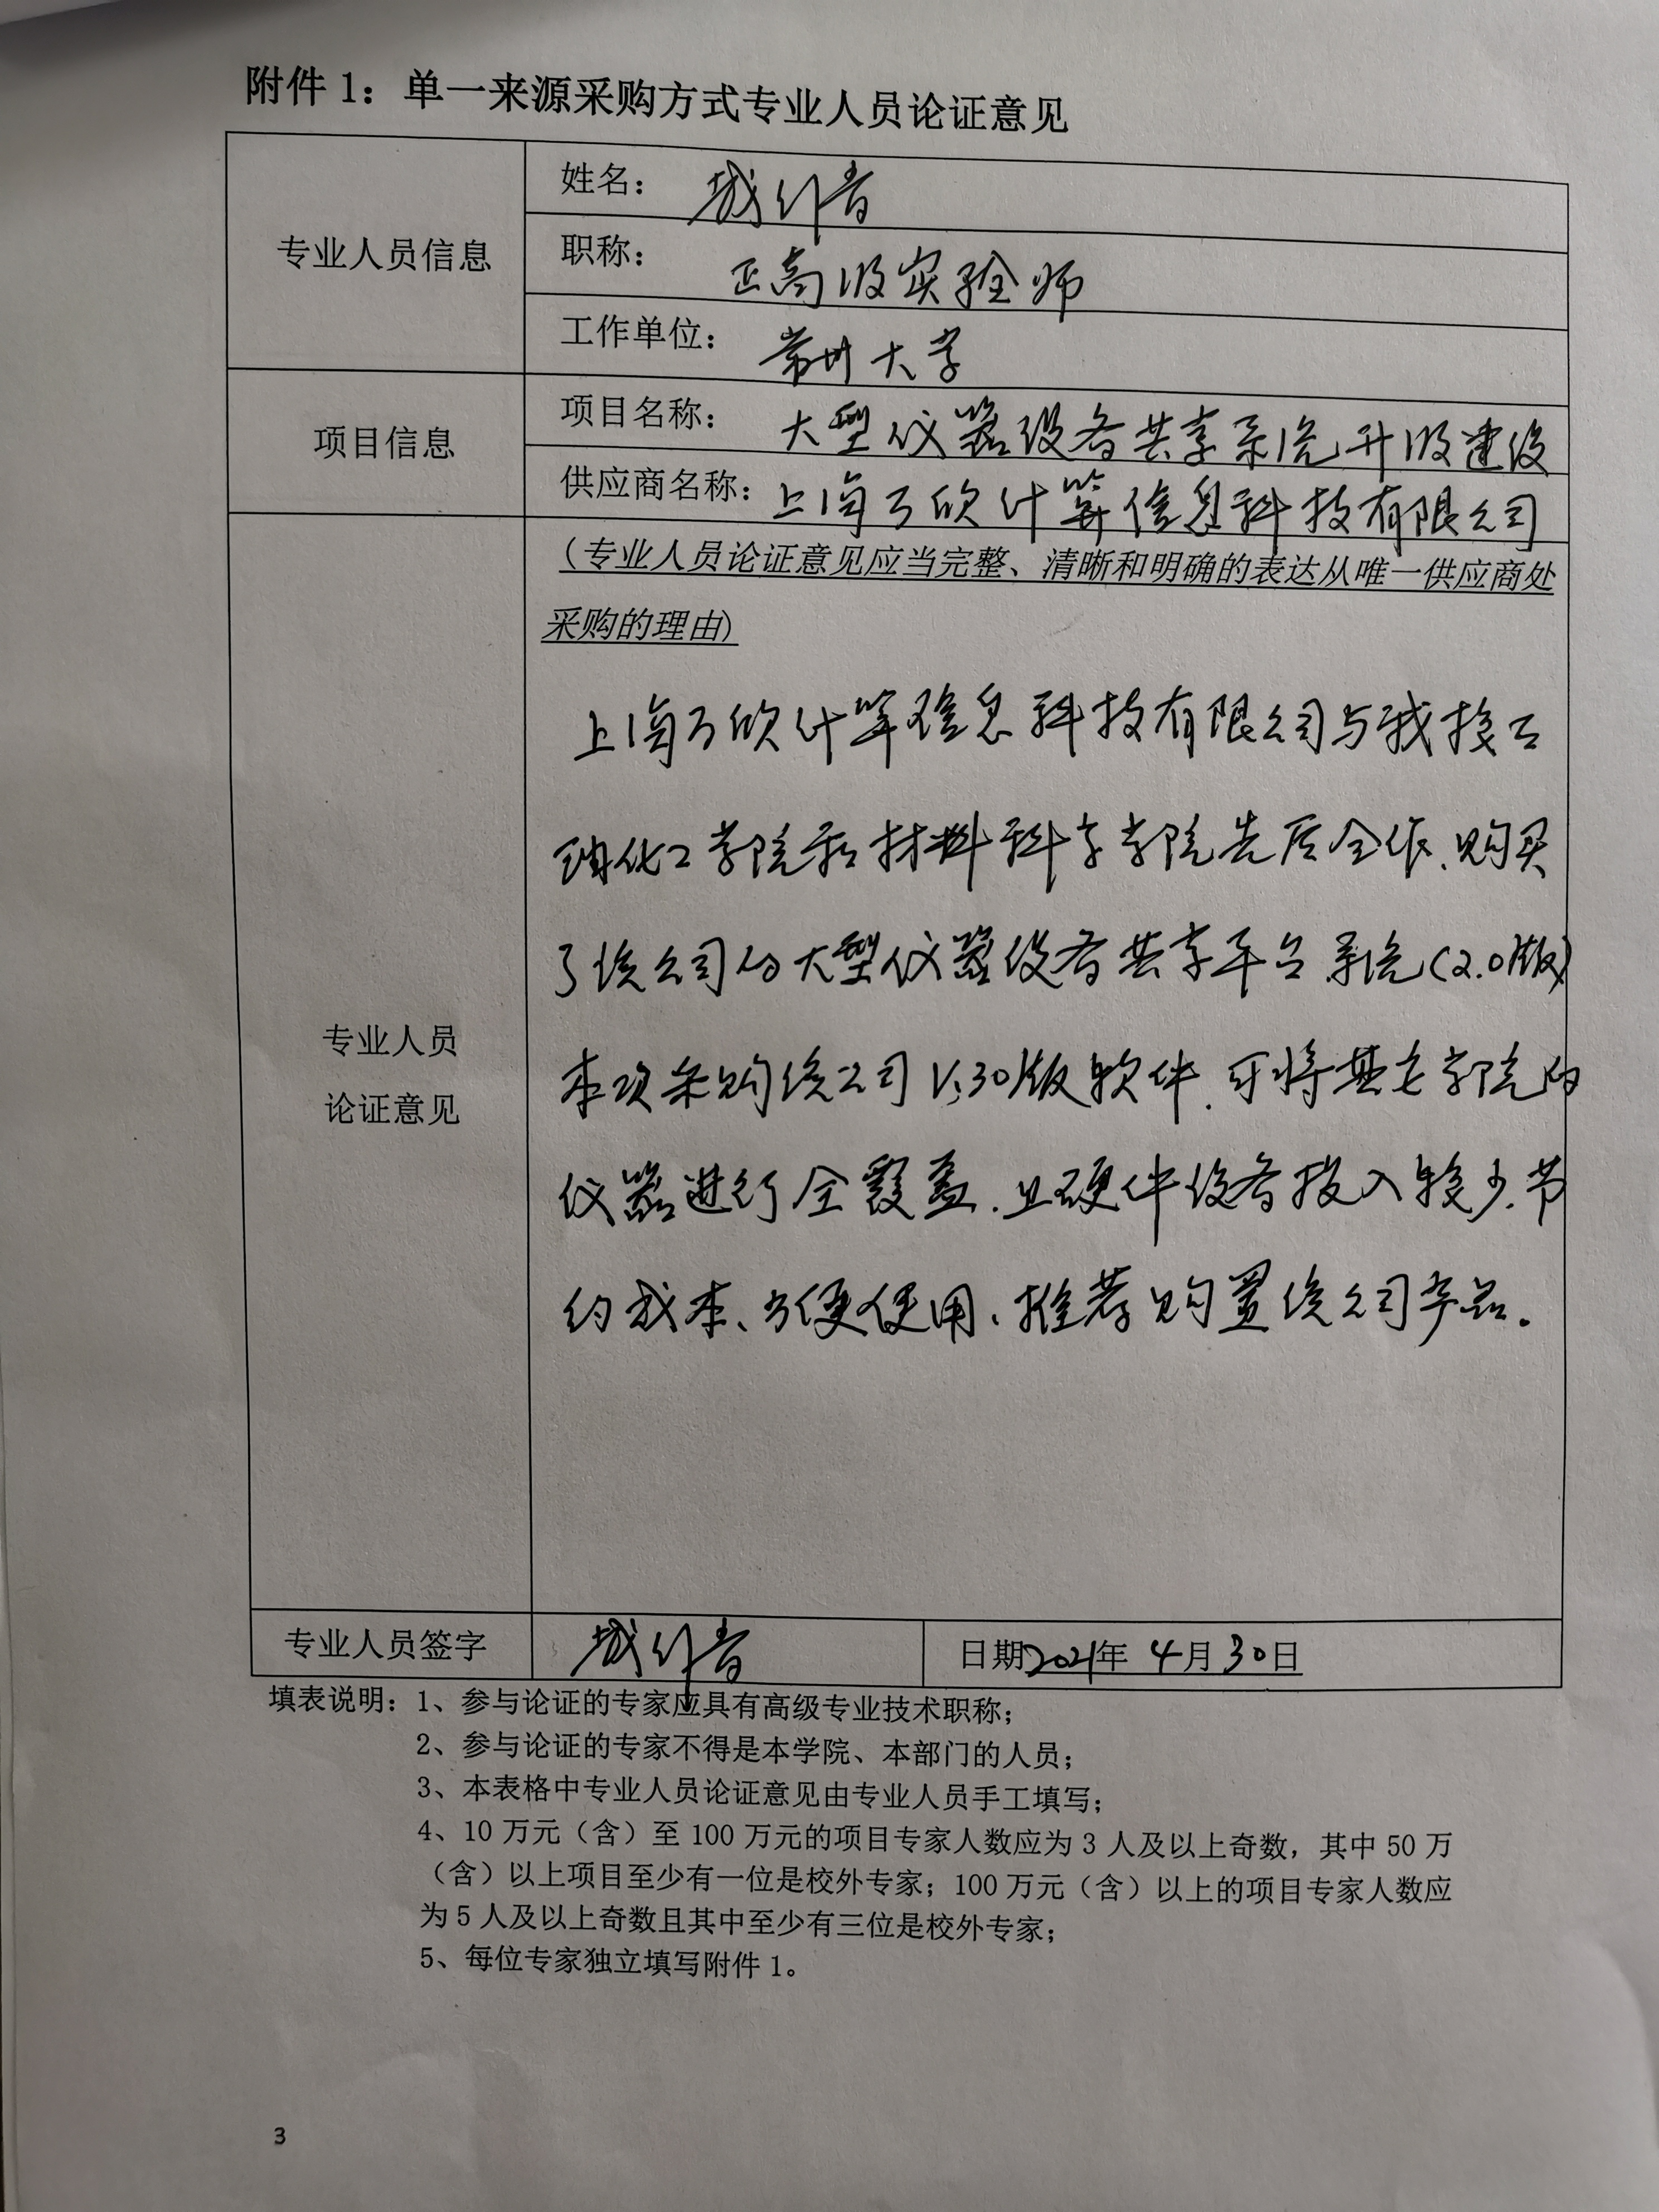 附件 1：单一来源采购方式专业人员论证意见
专业人员信息
姓名：
职称：正高级实验师
工作单位：常州大学
项目信息
项目名称：大型仪器设备共享系统升级建设
供应商名称：上海万欣计算信息科技有限公司
专业人员
论证意见
（专业人员论证意见应当完整、清晰和明确的表达从唯一供应商处
采购的理由)
上海万欣计算信息科技有限公司与我校石
油化工学院和材料科学学院先后合作、购买
了该公司的大型仪器设备共享平台系统（2.0版）
本次采购该公司V3.0版软件，可将其它学院的
仪器进行全覆盖，且硬件设备投入较少，节
约成本、方便使用，推荐购置该公司产品。
专业人员签字
日期2021年 4月30日
填表说明：1、参与论证的专家应具有高级专业技术职称；
2、参与论证的专家不得是本学院、本部门的人员；
3、本表格中专业人员论证意见由专业人员手工填写；
4、10 万元（含）至 100 万元的项目专家人数应为 3 人及以上奇数，其中 50 万
（含）以上项目至少有一位是校外专家；100 万元（含）以上的项目专家人数应
为 5 人及以上奇数且其中至少有三位是校外专家；
5、每位专家独立填写附件 1。
3